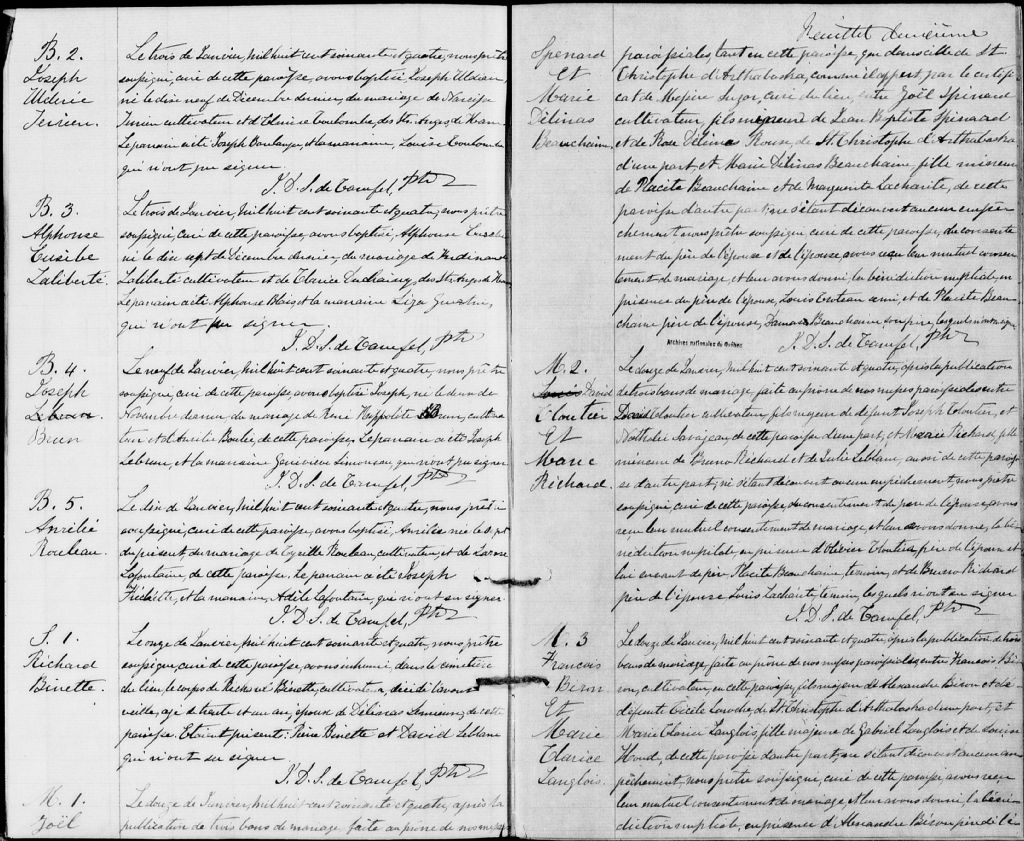 B. 2.
Joseph
Ulderic
Terrien.
Le trois de Janvier, mil huit cent soixante et quatre, nous prêtre
soussigné, curé de cette paroisse, avons baptisé Joseph Ulderic,
né le dix neuf de Décembre dernier, du mariage de Narcisse
Terrien cultivateur et de Elmire Coulombe, des Sts. Anges de Ham.
Le parrain a été Joseph Boulanger, et la marraine, Louise Coulombe
qui n'ont pu signer
J. D. S. de Campel, Ptr
B. 3.
Alphonse
Eusèbe
Laliberté.
Le trois de Janvier, mil huit cent soixante et quatre, nous prêtre
soussigné, curé de cette paroisse, avons baptisé, Alphonse Eusèbe
né le dix sept de Décembre dernier, du mariage de Ferdinand
Laliberté cultivateur et de Clarice des Sts. Anges de Ham
Le parrain a été Alphonse Blais et la marraine
qui n'ont pu signer
J. D. S. de Campel, Ptr
B. 4.
Joseph
Brun
Le neuf de Janvier, mil huit cent soixante et quatre, nous prêtre
soussigné, curé de cette paroisse, avons baptisé Joseph, né le
Novembre dernier du mariage de René Hyppolite Brun, cultiva
teur et d'Aurélie Boulé, de cette paroisse. Le parrain a été Joseph
Lebrun, et la marraine Geneviève Limoneau, qui n'ont pu signer
J. D. S. de Campel, Ptr
B. 5.
Aurélie
Rouleau.
Le dix de Janvier, mil huit cent soixante et quatre, nous, prêtre
soussigné, curé de cette paroisse, avons baptisé, Aurélie née le sept
du présent du mariage de Cyrille Rouleau, cultivateur, et de
Lafontaine de cette paroisse. Le parrain a été Joseph
Fréchette, et la marraine, Adèle Lafontaine, qui n'ont pu signer.
J. D. S. de Campel, Ptr
S. 1.
Richard
Binette.
Le onze de Janvier, mil huit cent soixante et quatre, nous, prêtre
soussigné, curé de cette paroisse, avons inhumé, dans le cimetière
du lieu, le corps de Richard Binette, cultivateur, décédé l'avant
veille, agé de trente et un an, époux de Délinas Lemieux, de cette
paroisse. Etaient présent: Pierre Binette et David Leblanc
qui n'ont su signer
J. D. S. de Campel, Ptr
M. 1.
Joël
Le douze de Janvier, mil huit cent soixante et quatre, après la
publication de trois bans de mariage faite au prône de nos messes
Feuillet deuxième
Spenard
Et
Marie
Délinas
Beauchaine.
paroissiales, tant en cette paroisse, que dans celle de St
Christophe d'Arthabaska, comme il appert par le certifi
cat de Messire Suzor, curé du lieu, entre Joël Spénard
cultivateur, fils mineur de Jean Baptiste Spénard
et de Rose Délima Rouse, de St. Christophe d'Arthabaska
d'une part, et Marie Délinas Beauchaine, fille mineure
de Placite Beauchaine et de Marguerite Lacharité, de cette
paroisse d'autre part; ne s'étant découvert aucun empê
chement nous prêtre soussigné curé de cette paroisse, du consente
ment du père de l'époux et de l'épouse, avons reçu leur mutuel consen
tement de mariage, et leur avons donné, la bénédiction nuptiale, en
présence du père de l'époux, Louis Croteau ami, et de Placite Beau
chaine père de l'épouse, Damas Beauchaine son frère, lesquels n'ont su signer
Archives nationales du Québec
J. D. S. de Campel, Ptr
M. 2.
Louis David
Cloutier
Et
Marie
Richard.
Le douze de Janvier, mil huit cent soixante et quatre, après la publication
de trois bans de mariage, faite au prône de nos messes paroissiales entre
David Cloutier cultivateur, fils majeur de défunt Joseph Cloutier, et
Nathalie Savageau de cette paroisse d'une part, et Marie Richard, fille
mineure de Bruno Richard et de Julie Leblanc, aussi de cette parois
se d'autre part; ne s'étant découvert aucun empêchement, nous prêtre
soussigné, curé de cette paroisse du consentement du père de l'épouse, avons
reçu leur mutuel consentement de mariage, et leur avons donné, la bé
nédiction nuptiale en présence d'Olivier Cloutier, frère de l'époux et
lui servant de père, Placite Beauchaine témoin, et de Bruno Richard
père de l'épouse Louis Lacharité témoin, lesquels n'ont su signer
J. D. S. de Campel, Ptr
M. 3
Francois
Biron
Et
Marie
Clarice
Langlois.
Le douze de Janvier, mil huit cent soixante et quatre, après la publication de trois
bans de mariage, faite au prône de nos messes paroissiales entre Francois Bi
ron, cultivateur, en cette paroisse, fils majeur de Alexandre Biron et de
défunte Cécile Laroche, de St. Christophe d'Arthabaska d'une part, et
Marie Clarice Langlois, fille majeure de Gabriel Langlois et de Louise
Houde, de cette paroisse d'autre part; ne s'étant découvert aucun em
pêchement, nous prêtre soussigné, curé de cette paroisse, avons reçu
leur mutuel consentement de mariage et leur avons donné, la béné
diction nuptiale, en présence d'Alexandre Biron père de l'é